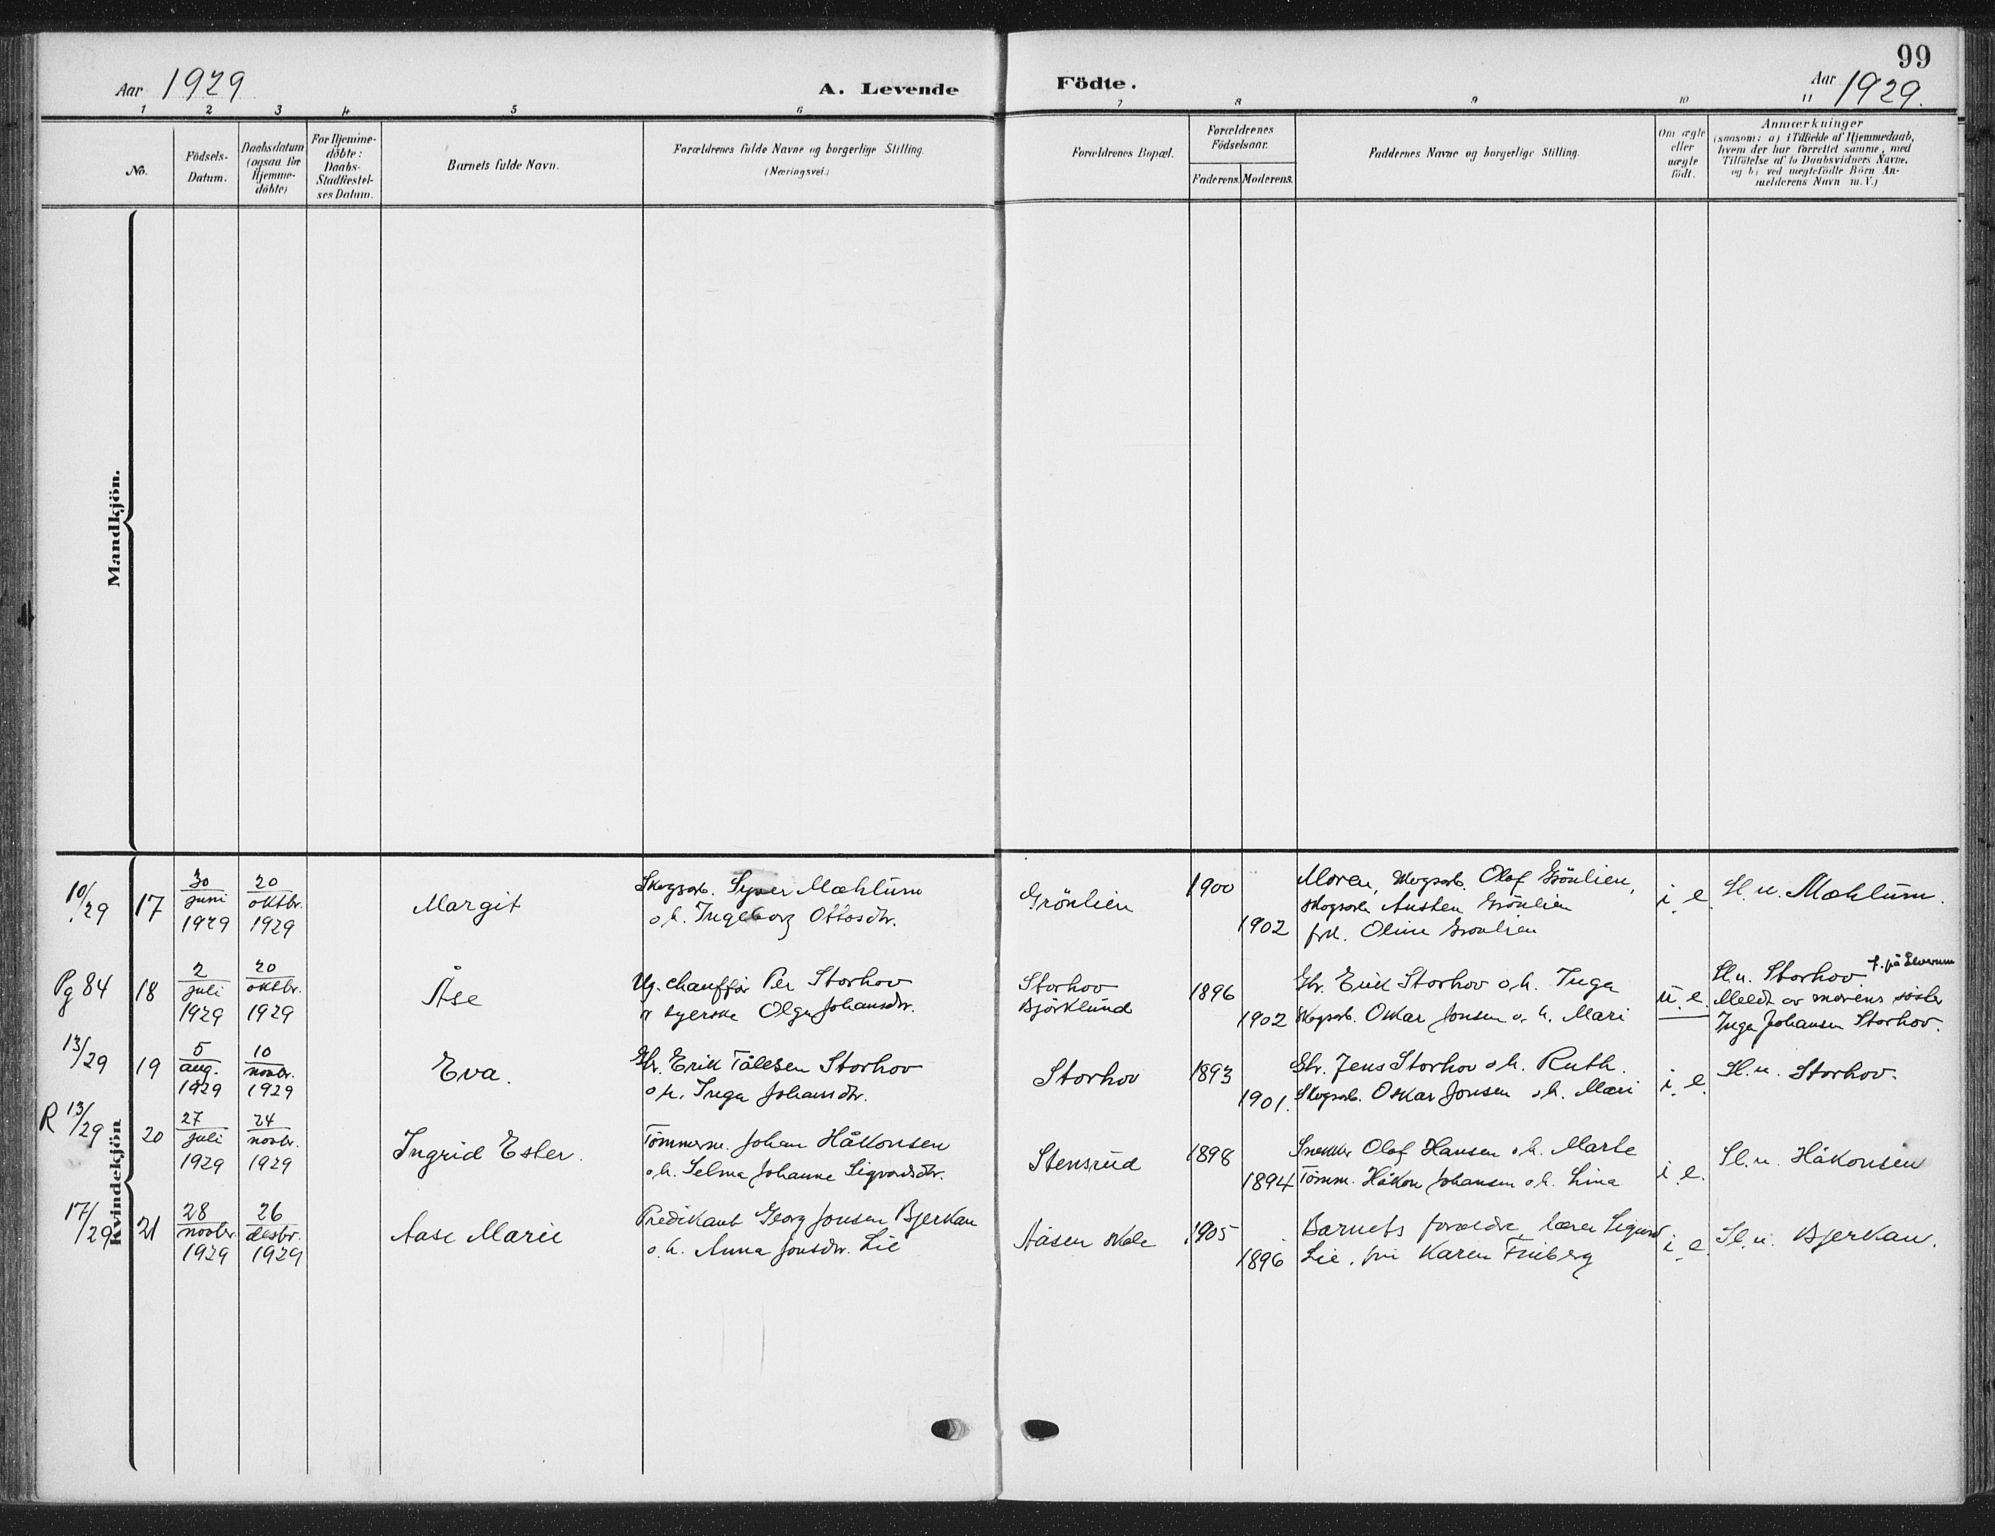 99
Aar 1929
A. Levende
Födte.
Aar 1929.
1 2 3 4 5 6 7 8 9 10 11
No.
Födsels-
Datum.
Daabsdatum
(ogsaa for
Hjemme-
döbte)
For Hjemme-
döbte:
Daabs-
Stadfæstel-
ses Datum.
Barnets fulde Navn.
Forældrenes fulde Navne og borgerlige Stilling.
(Næringsvei.)
Forældrenes Bopæl.
Forældrenes
Födselsaar.
Faderens. Moderens.
Faddernes Navne og borgerlige Stilling.
Om ægte
eller
uægte
født.
Anmærkninger
(saasom: a) i Tilfælde af Hjemmedaab,
hvem der har forrettet samme, med
Tilföielse af to Daabsvidners Navne.
og b) ved uægtefödte Börn An-
melderens Navn m. V.)
Mandkjön.
Kvindekjön
10/29 17
30
juni
1929
20
oktbr.
1929
Margit
Skogsarb. Syver Mæhlum
o.h. Ingeborg Ottosdtr.
Grönlien
1900
1902
Moren, skogsarb. Olaf Grönlien,
skogsarb. Grönlien
frk. Oline Grönlien
i. e.
H. u. Mæhlum.
Pg 84 18
2
juli
1929
20
oktbr.
1929
Åse
Ug. chauffør Per Storhov
syerske Olga Johansdtr.
Storhov
Björklund
1896
1902
Gbr. Erik Storhov o.h. Inga
skogsarb. Oskar Jonsen o. h. Mari
u. e.
H. u. Storhov
Meldt av morens søster
Inga Johansen Storhov.
13/29 19
5
aug.
1929
10
novbr.
1929
Eva.
Gbr. Erik Tållesen Storhov
o.h. Inga Johansdtr.
Storhov
1893
1901.
Gbr. Jens Storhov o.h. Ruth.
Skogsarb. Oskar Jonsen o.h. Mari
i. e.
H. u. Storhov.
R 13/29 20
27
juli
1929
24
novbr.
1929
Ingrid Ester.
Tömmerm. Johan Håkonsen
o.h. Selma Johanne Sigvardsdtr.
Stensrud
1898
1894
Snekker Olaf Hansen o.h. Marte
Tömm. Håkon Johansen o.h. Lina
i. e.
H. u. Håkonsen
17/29 21
28
novbr.
1929
26
desbr.
1929
Aase Marie
Predikant Georg Jonsen Bjerkan
o.h. Anna Jonsdtr. Lie
Aasen skole
1905
1896
Barnets foreldre, lærer Sigurd
Lie, frk Karen Finberg
i. e.
H. u. Bjerkan.